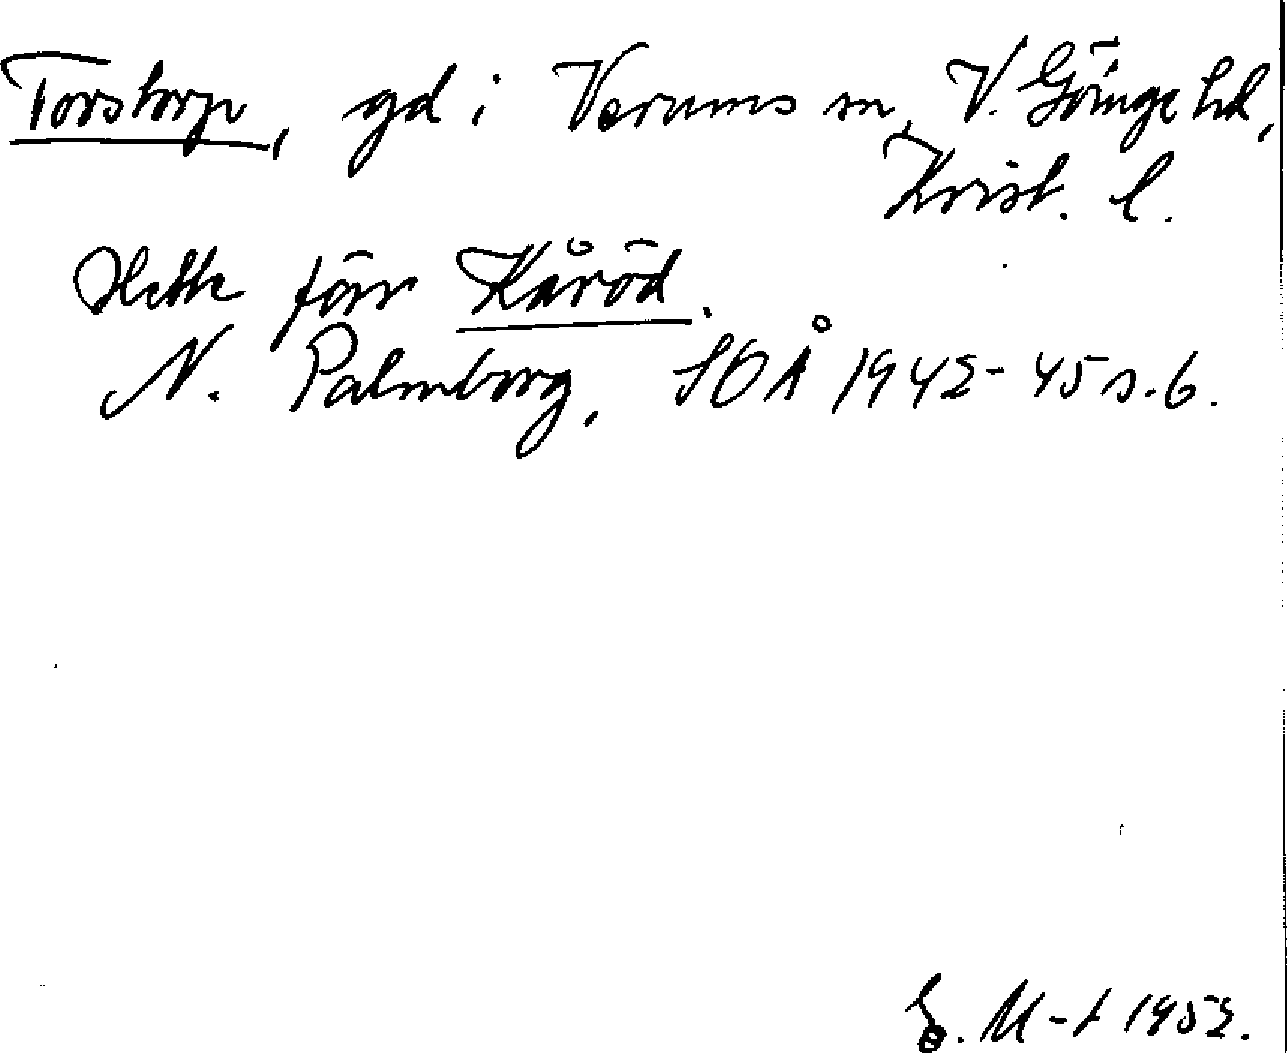 Torstorp, gd i Verums sn, V. Göinge hd,
Krist. l.
Hette förr Kåröd.
N. Palmborg, SOÅ 1942-45 s. 6.
M-t 1953.